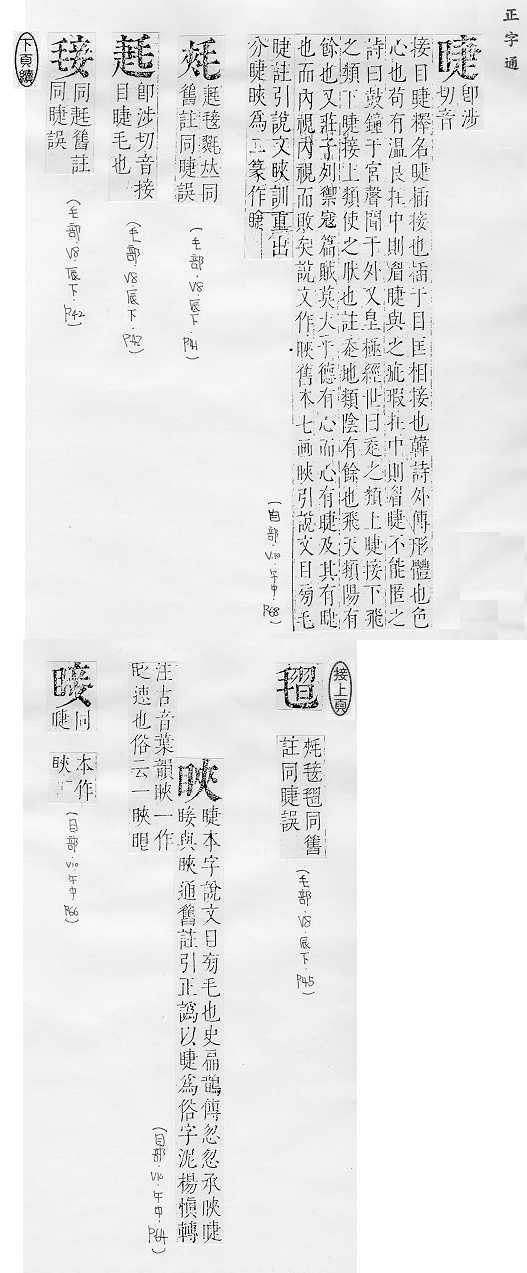 正字通
睫
即涉
切音
接目睫釋名睫插接也插于目匡相接也韓詩外傳形體也色
心也苟有温良在中則眉睫與之疵瑕在中則眉睫不能匿之
詩曰鼓鐘于宮聲聞于外又皇極經世曰走之類上睫接下飛
之類下睫接上類使之然也註走地類陰有餘也飛天類陽有
餘也又莊子列禦寇篇賊莫大乎德有心而心有睫及其有睫
也而内視内視而敗矣說文作䀹舊本七画䀹引說文目旁毛
睫註引說文䀹訓重出
分睫䀹為二篆作
(目部·V10·午中·P68)
同
舊註同睫誤
(毛部·V8·辰下·P41)
即涉切音接
目睫毛也
(毛部·V8·辰下·P42)
同 舊註
同睫誤
(毛部·V8·辰下·P42)
下頁續
接上頁
同舊
註同睫誤
(毛部·V8·辰下·P45)
䀹
睫本字說文目旁毛也史扁鵲傳忽忽承䀹睫
與䀹通舊註引正譌以睫為俗字泥楊慎轉
注古音葉韻䀹一作
眨遽也俗云一䀹眼
(目部·V10·午中·P64)
同
睫
本作
䀹
(目部·V10·午中·P66)